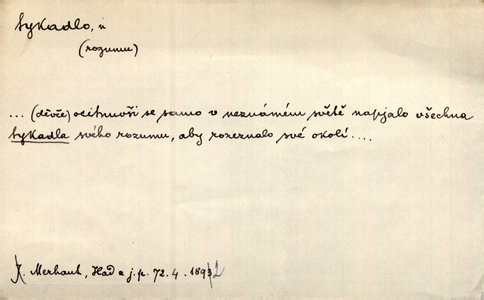 tykadlo, n
(rozumu)
... (děvče) ocitnuvši se samo v neznámém světě napjalo všechna
tykadla svého rozumu, aby rozeznalo své okolí....
Merhaut, Had a j. p. 72. 4. 1892